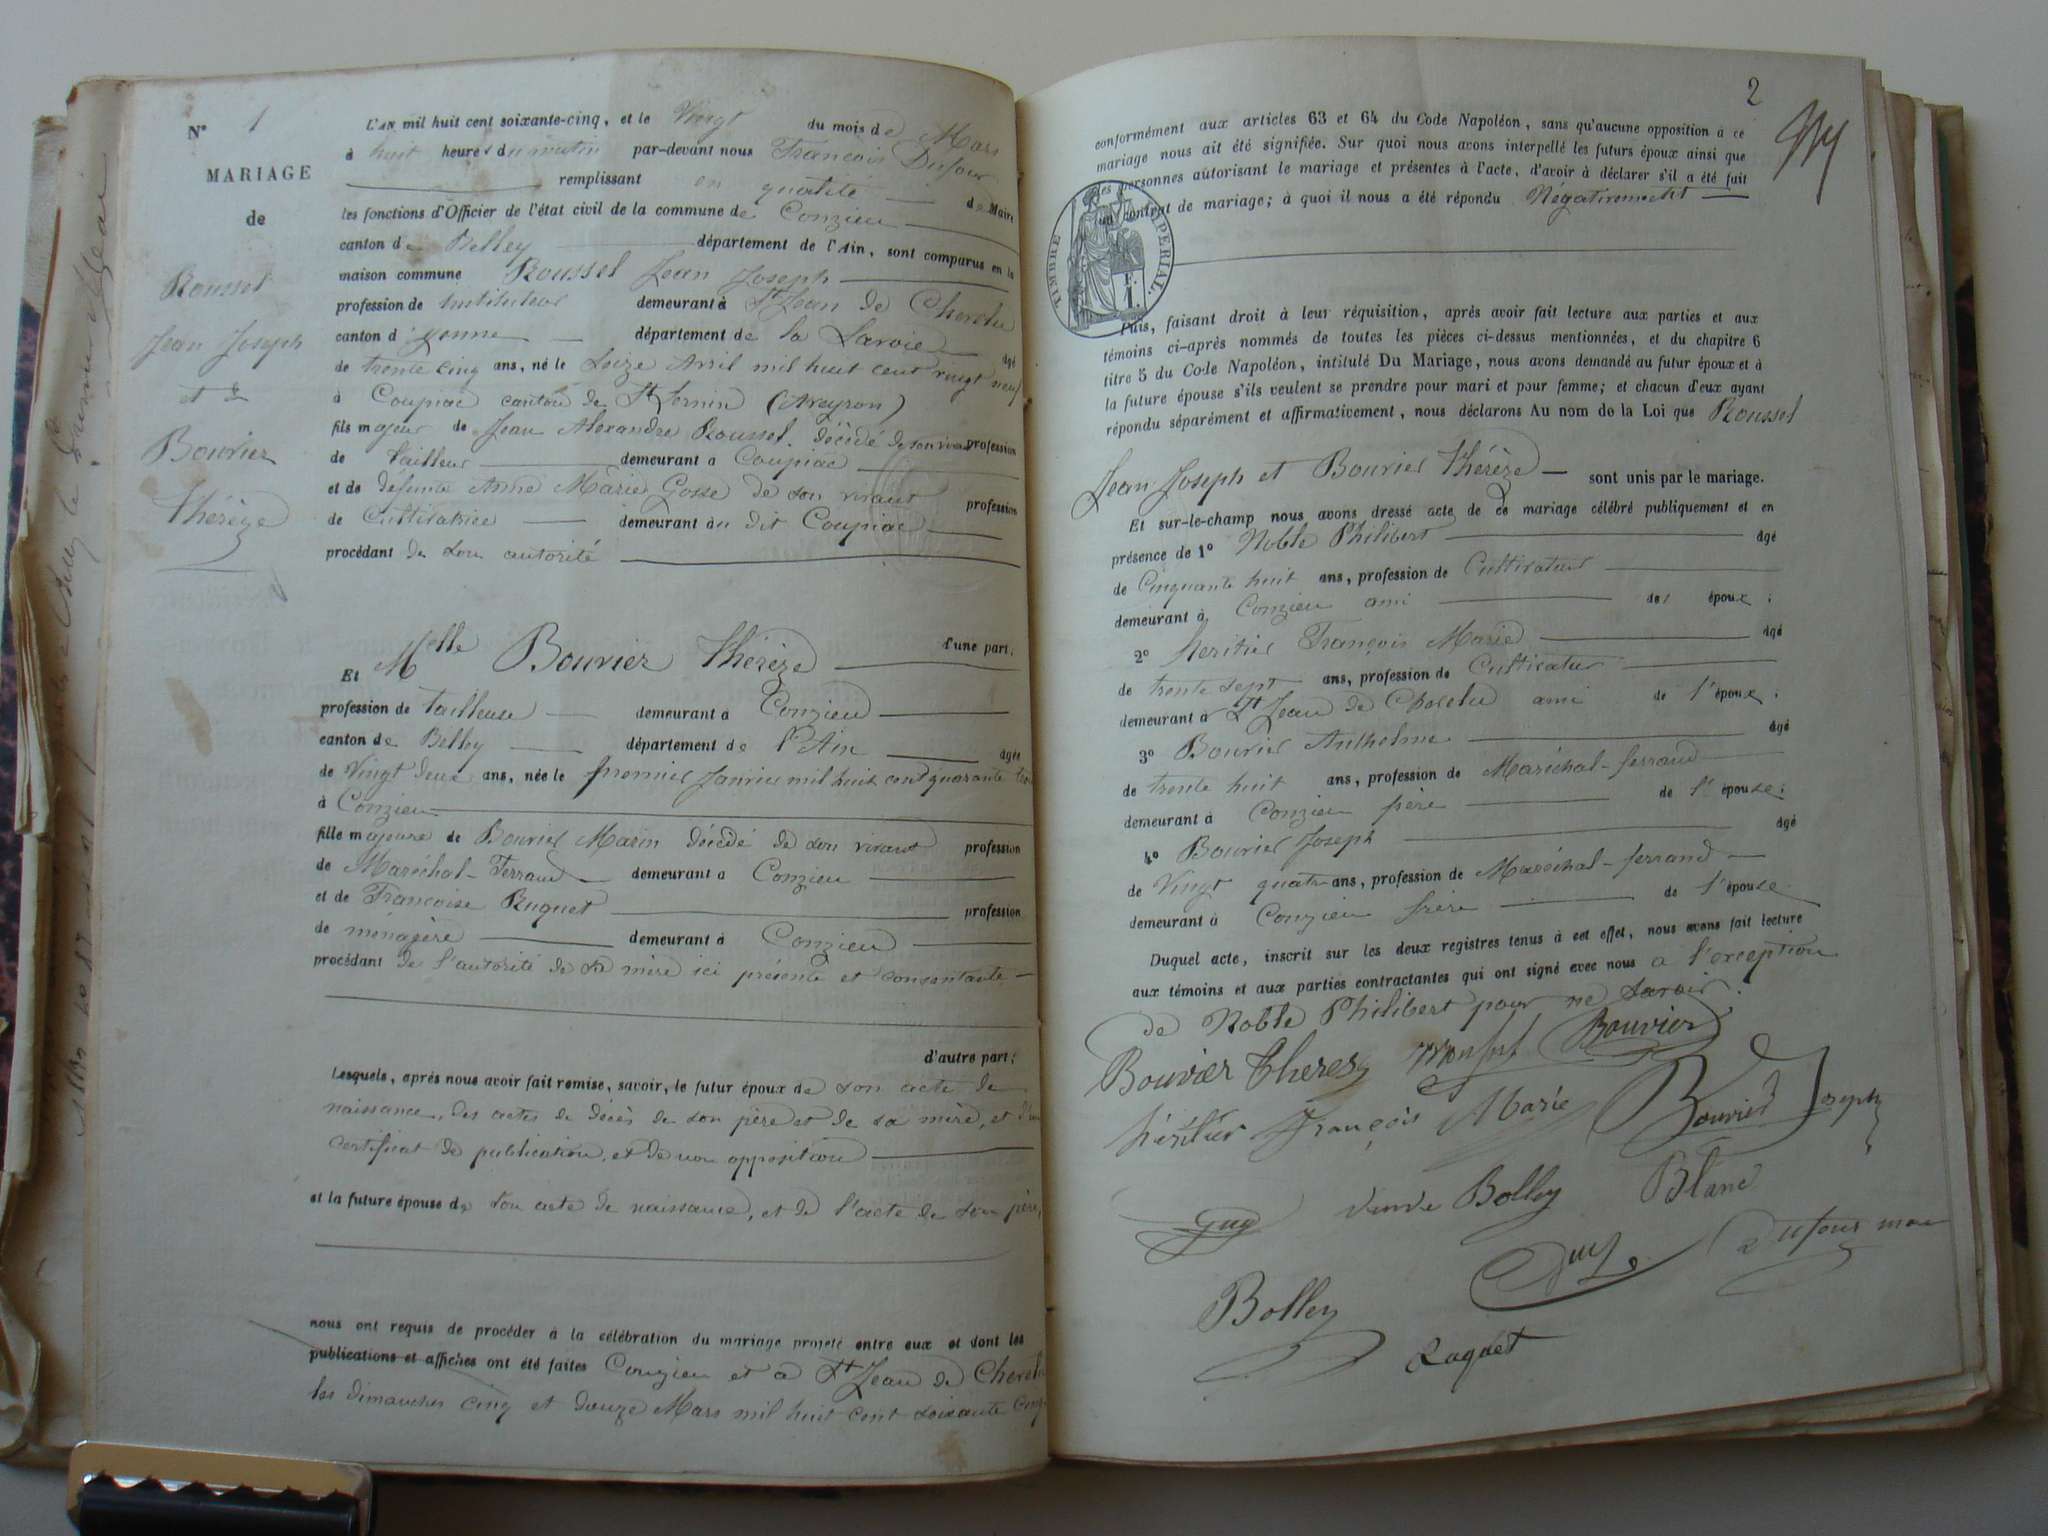 N° 1
MARIAGE
de
Roussel
Jean Joseph
et de
Bouvier
Thérèze
L'AN mil huit cent soixante-cinq, et le Vingt du mois de Mars
à huit heures du matin par-devant nous François Dufour
remplissant en qualité de Maire
les fonctions d'Officier de l'état civil de la commune de Conzieu
canton de Belley département de l'Ain, sont comparus en la
maison commune Roussel Jean Joseph
profession de instituteur demeurant à St Jean de Chevelu
canton d'yenne département de la Savoie âgé
de trente cinq ans, né le Seize Avril mil huit cent vingt neuf
à Coupiac canton de St Sernin (Aveyron)
fils majeur de Jean Alexandre Roussel. décédé de son vivant profession
de tailleur demeurant à Coupiac
et de défunte Anne Marie Gosse de son vivant profession
de Cultivatrice demeurant au dit Coupiac
procédant de son autorité
d'une part;
Et Melle Bouvier Thérèze
profession de tailleuse demeurant à Conzieu
canton de Belley département de l'Ain âgée
de Vingt deux ans, née le premier Janvier mil huit cent quarante trois
à Conzieu
fille majeure de Bouvier Marin décédé de son vivant profession
de Maréchal-Ferrand demeurant à Conzieu
et de Françoise Ruguet profession
de ménagère demeurant à Conzieu
procédant de l'autorité de sa mère ici présente et consentante
d'autre part;
Lesquels, après nous avoir fait remise, savoir, le futur époux de son acte de
naissance, des actes de décès de son père et de sa mère, et d'un
certificat de publication, et de non opposition
et la future épouse de son acte de naissance, et de l'acte de son père,
nous ont requis de procéder à la célébration du mariage projeté entre eux et dont les
publications et affiches ont été faites Conzieu et à St Jean de Chevelu
les dimanches cinq et douze Mars mil huit cent soixante cinq
2
conformément aux articles 63 et 64 du Code Napoléon, sans qu'aucune opposition à ce
mariage nous ait été signifiée. Sur quoi nous avons interpellé les futurs époux ainsi que
les personnes autorisant le mariage et présentes à l'acte, d'avoir à déclarer s'il a été fait
un contrat de mariage; à quoi il nous a été répondu Négativement
TIMBRE IMPERIAL.
F.
1.
Puis, faisant droit à leur réquisition, après avoir fait lecture aux parties et aux
témoins ci-après nommés de toutes les pièces ci-dessus mentionnées, et du chapitre 6
titre 5 du Code Napoléon, intitulé Du Mariage, nous avons demandé au futur époux et à
la future épouse s'ils veulent se prendre pour mari et pour femme; et chacun d'eux ayant
répondu séparément et affirmativement, nous déclarons Au nom de la Loi que Roussel
Jean Joseph et Bouvier Thérèze sont unis par le mariage.
Et sur-le-champ nous avons dressé acte de ce mariage célébré publiquement et en
présence de 1° Noble Philibert âgé
de Cinquante huit ans, profession de Cultivateur
demeurant à Conzieu ami des époux;
2° Héritier François Marie âgé
de trente sept ans, profession de Cultivateur
demeurant à St Jean de Chevelu ami de l'époux;
3° Bouvier Anthelme âgé
de trente huit ans, profession de Maréchal-ferrand
demeurant à Conzieu père de l'épouse;
4° Bouvier Joseph âgé
de Vingt quatre ans, profession de Maréchal-ferrand
demeurant à Conzieu frère de l'épouse
Duquel acte, inscrit sur les deux registres tenus à cet effet, nous avons fait lecture
aux témoins et aux parties contractantes qui ont signé avec nous à l'exception
de Noble Philibert pour ne savoir.
Bouvier Therez Bouvier
héritier François Marie Bouvier Joseph
Guy Bolley Blanc
Dufour
Bolley
Raquet